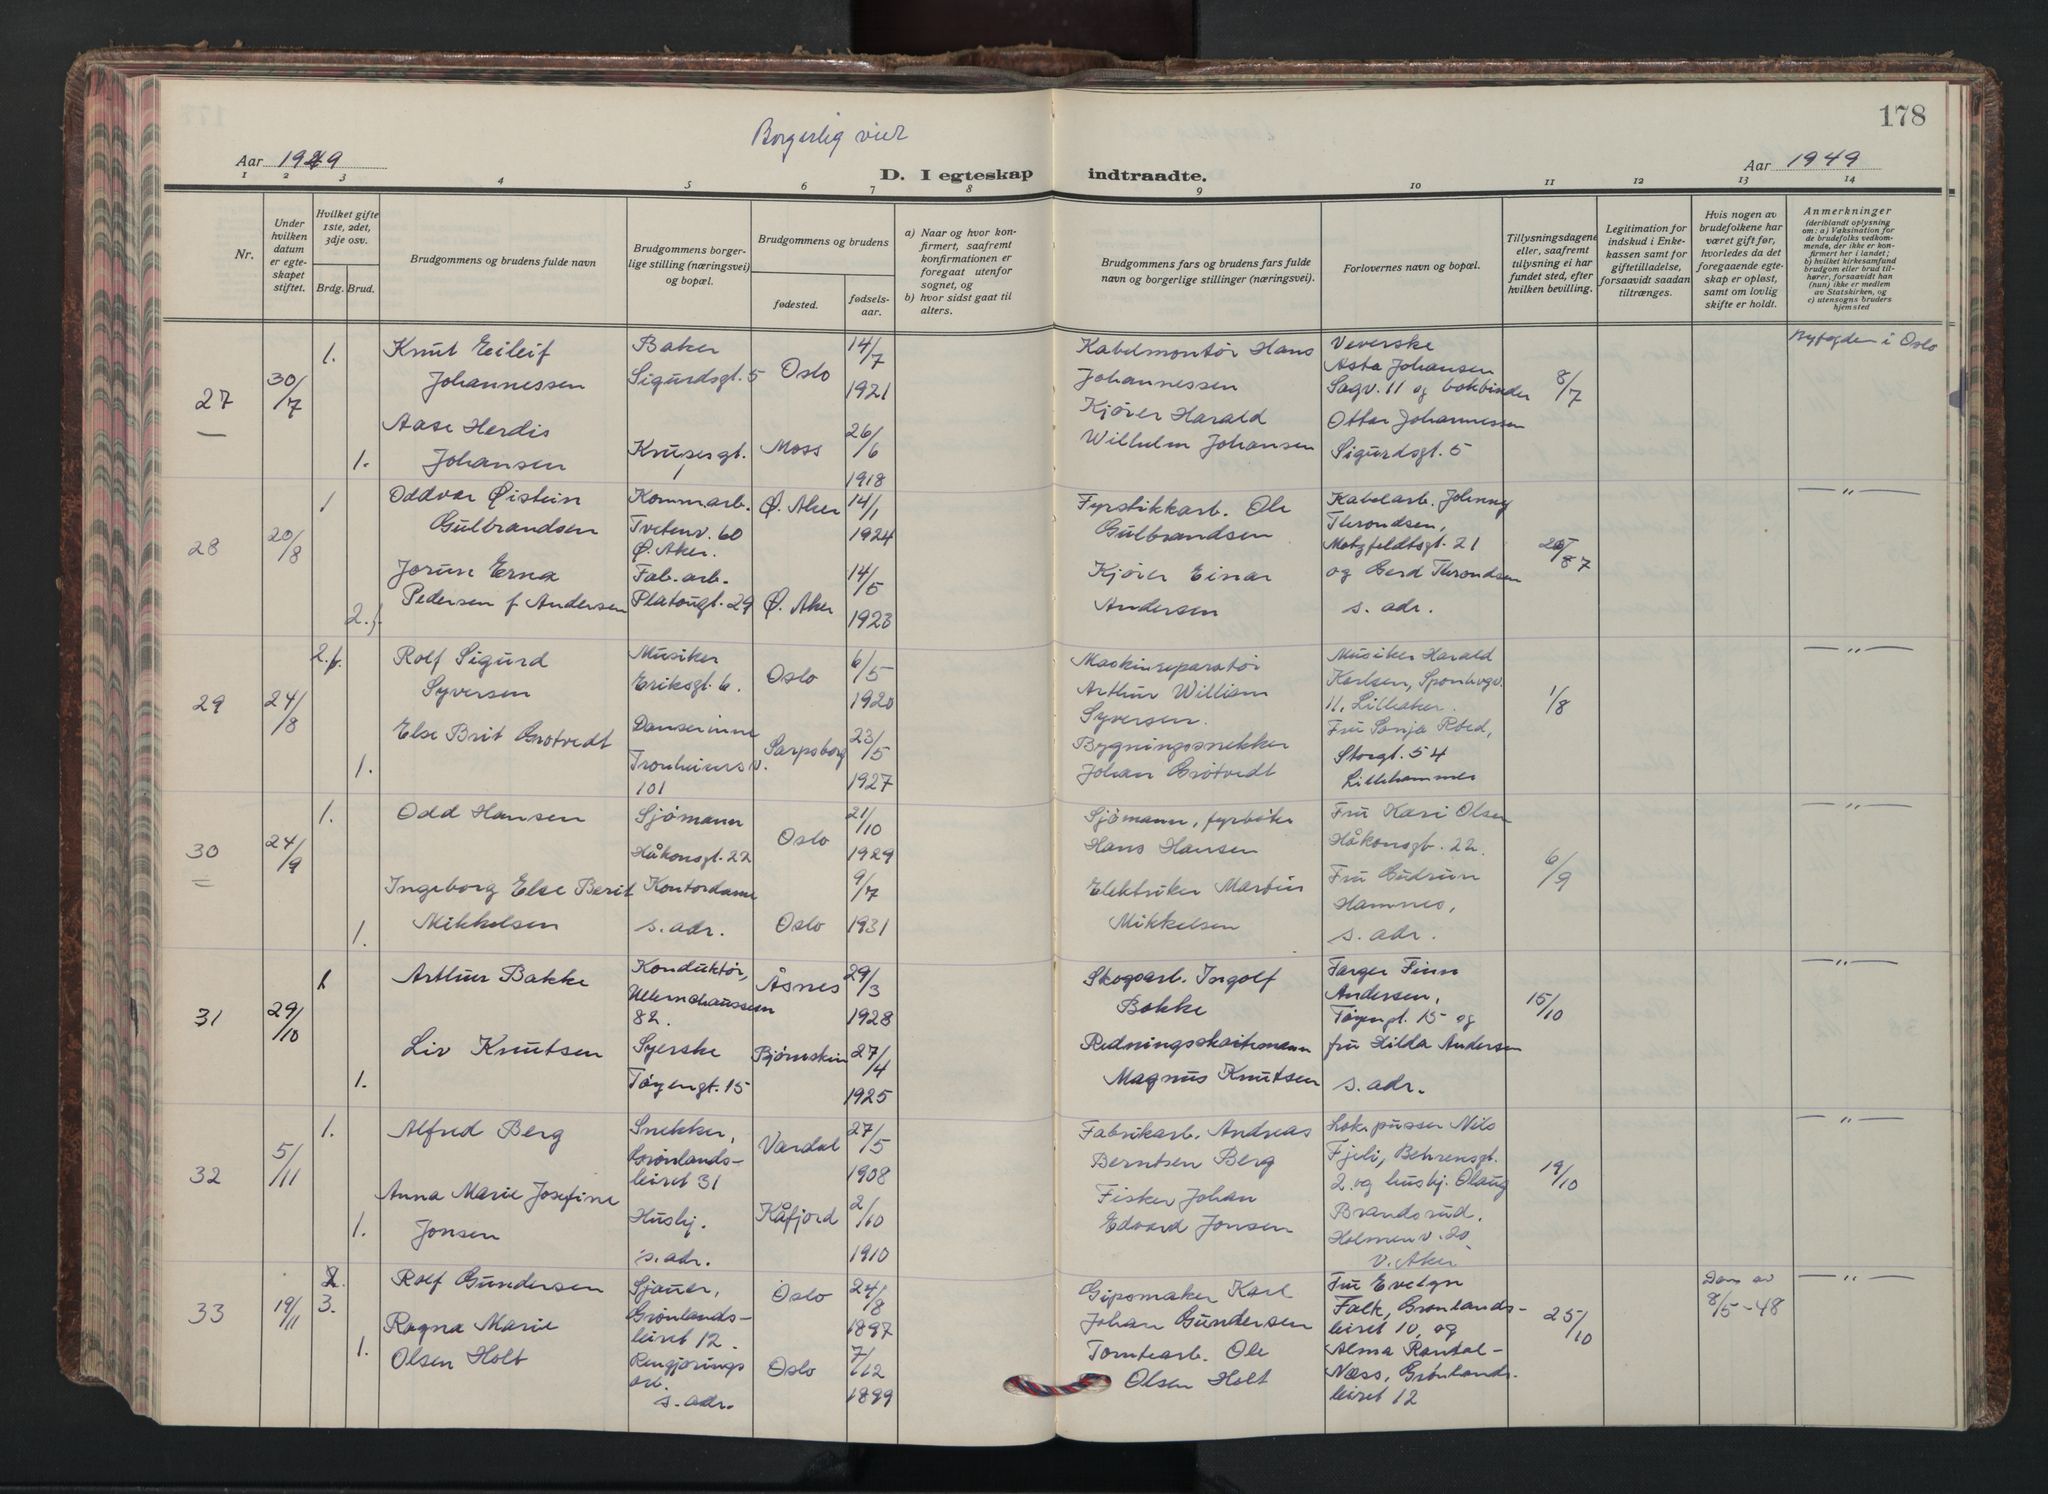 178
Borgerlig viet
Aar 1949
Aar 1949
D. I egteskap indtraadte.
1 2 3 4 5 6 7 8 9 10 11 12 13 14
Nr.
Under hvilken datum er egteskapet stiftet.
Hvilket gifte 1ste, 2det, 3dje osv.
Brdg. Brud.
Brudgommens og brudens fulde navn
Brudgommens borgerlige stilling (næringsvei) og bopæl.
Brudgommens og brudens
fødested. fødselsaar.
a) Naar og hvor konfirmert, saafremt konfirmationen er foregaat utenfor sognet, og
b) hvor sidst gaat til alters.
Brudgommens fars og brudens fars fulde navn og borgerlige stillinger (næringsvei).
Forlovernes navn og bopæl.
Tillysningsdagene eller, saafremt tillysning ei har fundet sted, efter hvilken bevilling.
Legitimation for indskud i Enkekassen samt for giftetilladelse, forsaavidt saadan tiltrænges.
Hvis nogen av brudefolkene har været gift før, hvorledes da det foregaaende egteskap er opløst, samt om lovlig skifte er holdt.
Anmerkninger
(deriblandt oplysning om: a) Vaksination for de brudefolks vedkommende, der ikke er konfirmert her i landet; b) hvilket kirkesamfund brudgom eller brud tilhører, forsaavidt han (hun) ikke er medlem av Statskirken, og c) utensogns bruders hjemsted
27
30/7
1.
Knut Eileif
Johannessen
Baker
Sigurdsgt. 5
Oslo
14/7
1921
Kabelmontør Hans
Johannessen
Veverske
Asta Johansen
Sagv. 11 og bokbinder
8/7
Byfogden i Oslo
1.
Aase Herdis
Johansen
Krusesgt.
1
Moss
26/6
1918
Kjører Harald
Wilhelm Johansen
Ottar Johannessen
Sigurdsgt. 5
28
20/8
1
Oddvar Øistein
Gulbrandsen
Kommarb.
Tvetenv. 60
Ø. Aker.
Ø. Aker
14/1
1924
Fyrstikkarb. Ole
Gulbrandsen
Kabelarb. Johnny
Throndsen,
Motzfeldtsgt. 21
— " —
2.f.
Jorun Erna
Pedersen f Andersen
Fab.arb.
Platougt. 29
Ø. Aker
14/5
1923
Kjører Einar
Andersen
og Gerd Throndsen
s. adr.
29
24/8
2.f.
Rolf Sigurd
Syversen
Musiker
Eriksgt. 6.
Oslo
6/5
1920
Maskinreparatør
Arthur William
Syversen.
Musiker Harald
Karlsen,
11, Lilleaker.
1/8
— " —
1.
Else Brit Grøtvedt
Danserinne
Tronheimsv.
101
Sarpsborg
23/5
1927
Bygningssnekker
Johan Grøtvedt
Fru Sonja Roed,
Storgt. 54
Lillehammer
30
24/9
1.
Odd Hansen
Sjømann
Håkonsgt. 22
Oslo
21/10
1929
Sjømann, fyrbøter
Hans Hansen
Fru Kari Olsen
Håkonsgt. 22.
6/9
— " —
1.
Ingeborg Else Berit
Mikkelsen
Kontordame
s. adr.
Oslo
9/7
1931
Elektriker Martin
Mikkelsen
Fru Gudrun
Hamnes,
s. adr.
31
29/10
1
Arthur Bakke
Konduktør,
Ullernchausseen
82.
Åsnes
29/3
1928
Skogsarb. Ingolf
Bakke
Farger Finn
Andersen,
Tøyengt. 15 og
15/10
— " —
1.
Liv Knutsen
Syerske
Tøyengt. 15
Bjørnskin
27/4
1925
Redningsskøitemann
Magnus Knutsen
fru Hilda Andersen
s. adr.
32
5/11
1.
Alfred Berg
Snekker,
Grønlands-
leiret 31
Vardal
27/5
1908
Fabrikarb. Andreas
Berntsen Berg
Lok.pusser Nils
Fjeli, Behrensgt.
2. og husbj. Olaug
19/10
— " —
1.
Anna Marie Josefine
Jonsen
Husbj.
s. adr.
Kåfjord
2/10
1910
Fisker Johan
Edvard Jonsen
Brandsrud,
Holmenv. 20
V. Aker
33
19/11
3.
Rolf Gundersen
Sjauer,
Grønlands-
leiret 12.
Oslo
24/8
1897
Gipsmaker Karl
Johan Gundersen
Fru Evelyn
Falk, Grønlands-
leiret 10, og
25/10
Dom av
8/5-48
— " —
1.
Ragna Marie
Olsen Holt
Rengjørings
arb.
s. adr.
Oslo
7/12
1899
Tomtearb. Ole
Olsen Holt
Alma Rantal-
Næss, Grønlands-
leiret 12